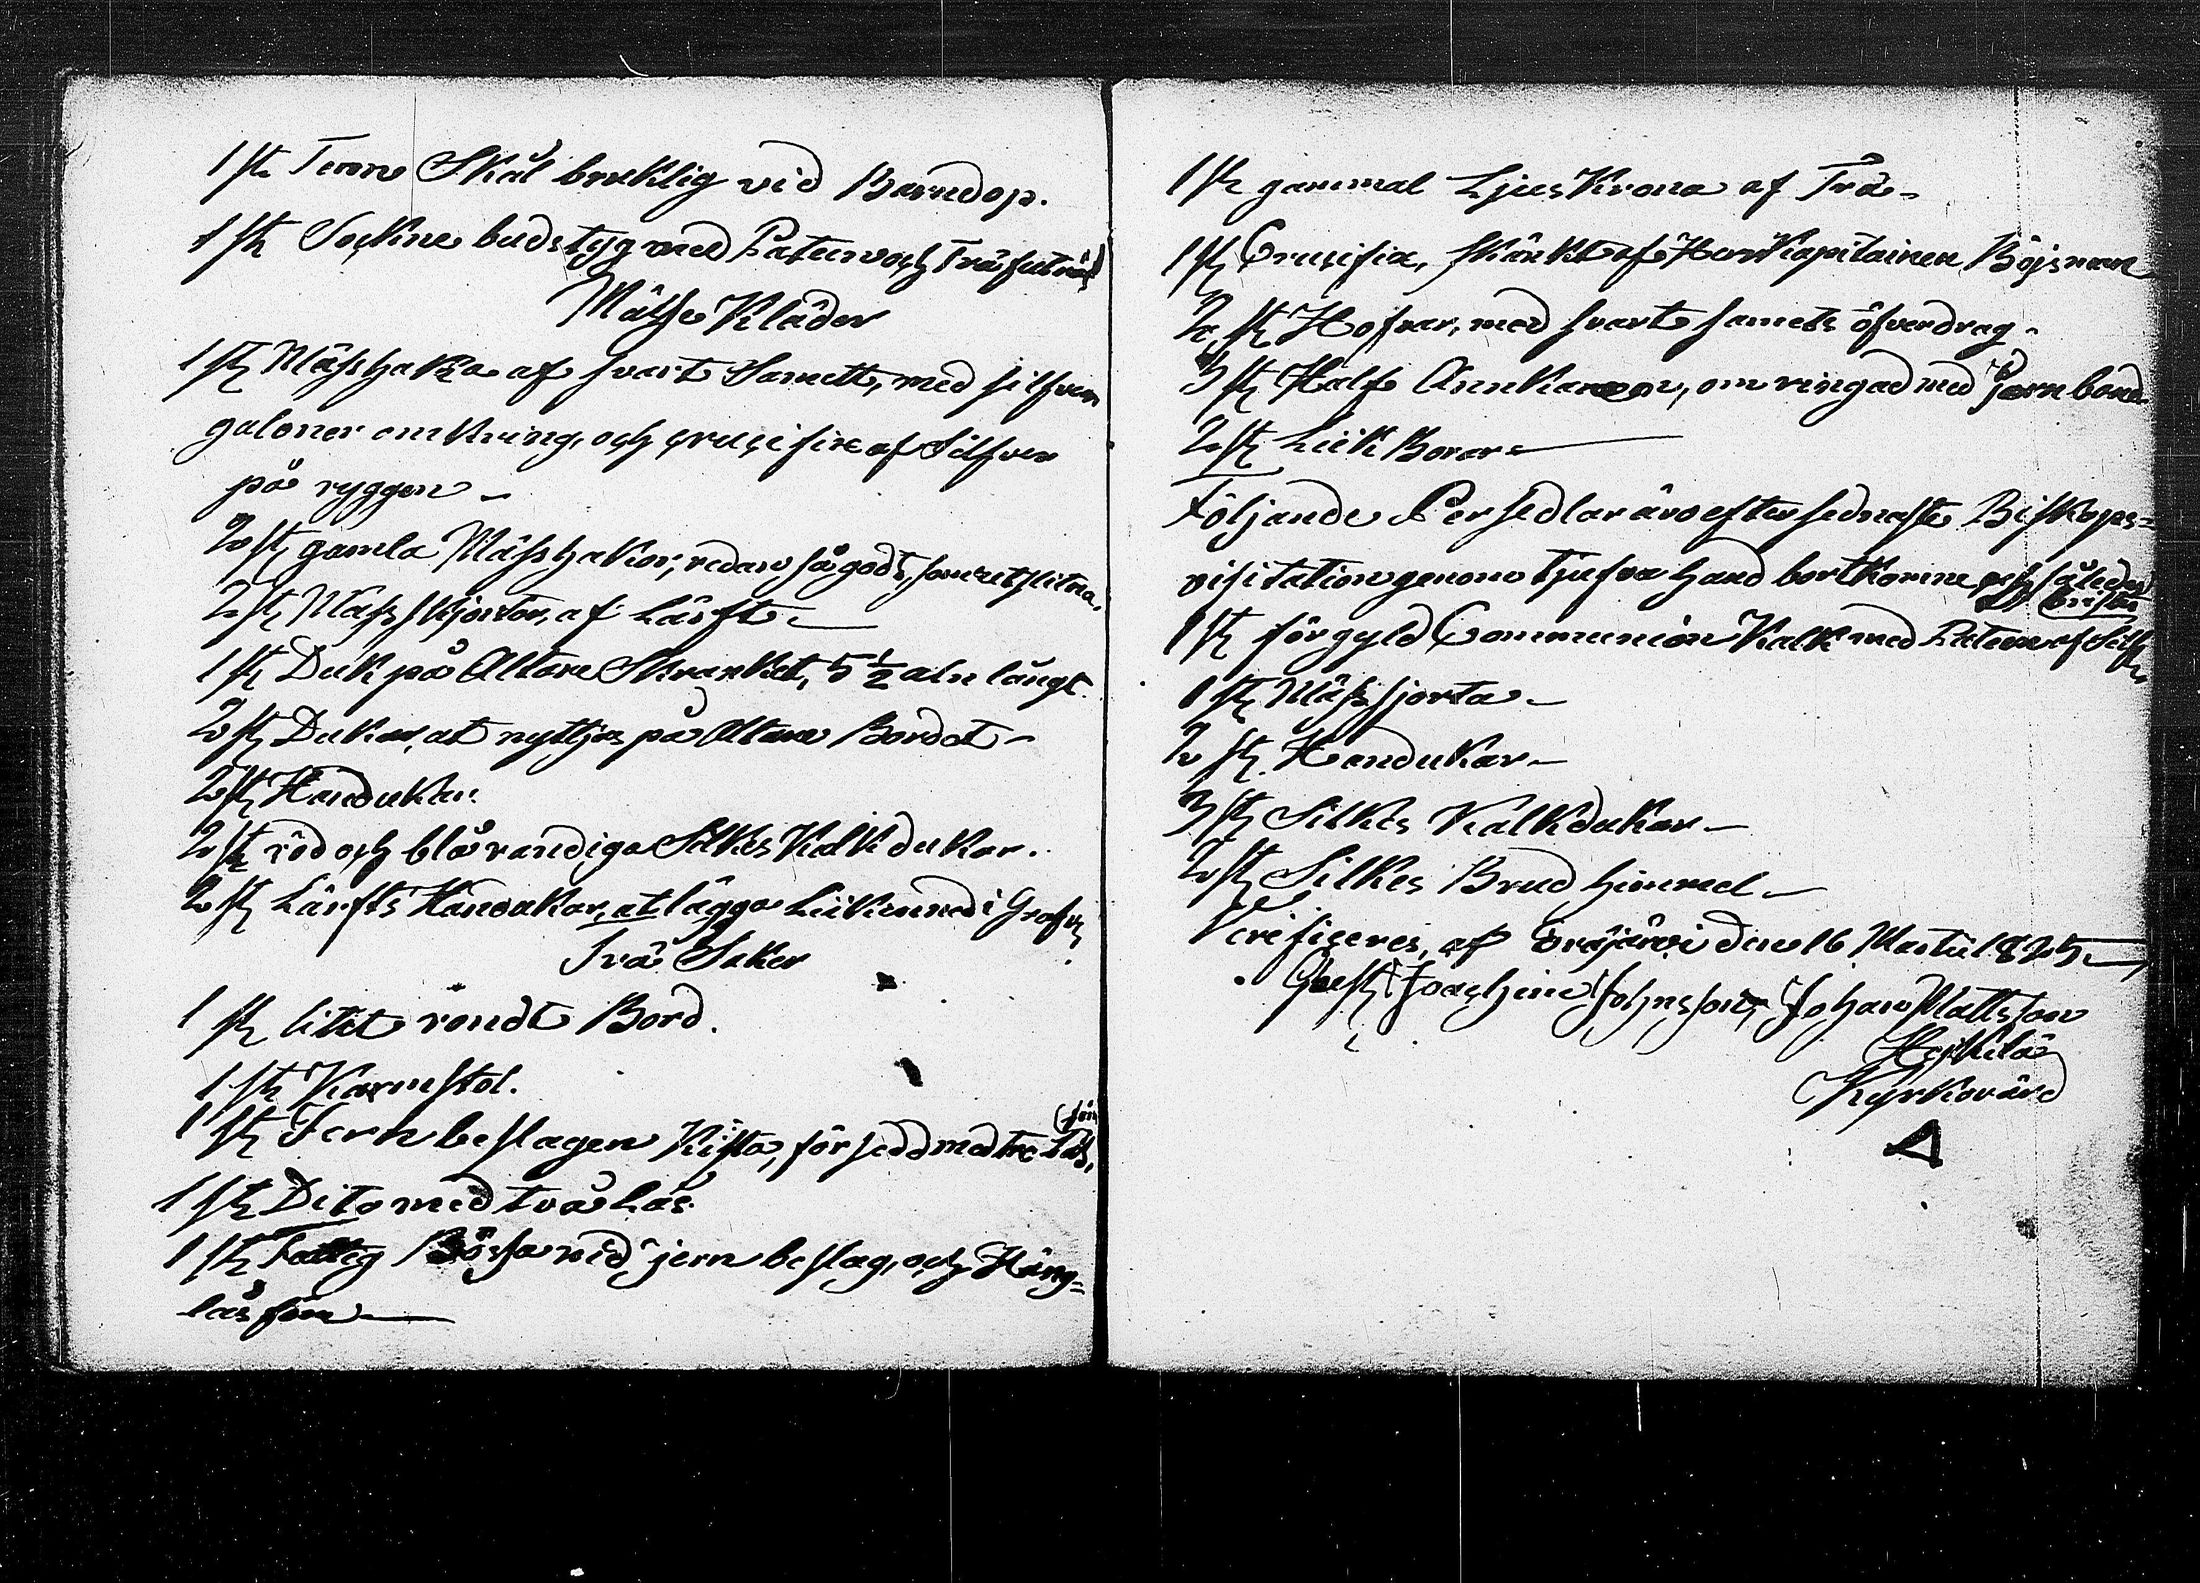 1 st Tenn Skål bruklig vid Barndop.
1 st Sockne budstyg med Paten och Träfuteral
Mässe Kläder
1 st Mässhaka af svart Samett, med silfver
galoner omkring, och crucifix af Silfver
på ryggen
2 st gamla Mässhakor, redan så godt, som utslitna.
2 st Mäss skjortor, af Lärft
1 st Duk på Altare Skranket, 5 1/2 aln långt.
2 st Dukar, at nyttjas på Altare Bordet
2 st Handukar.
2 st röd och blå randiga Silkes Kalk dukar.
2 st Lärfts Handukar, at lägga Liiken ned i Grafven
Trä Saker
1 st litet rundt Bord.
1 st Karmstol.
1 st Jern beslagen Kista, försedd med tre Lås,
1 st Dito med två Lås.
1 st Fattig Bössa med jern beslag, och Häng-
lås före
1 st gammal Ljus Krona af Trä
1 st Crucifix, skänkt af Herr Kapitainen Böjsman
2 st Hofvar, med svart samets öfverdrag
3 st Half Annkaren, om ringad med Jern band
2 st Liik Borar
Följande Persedlar äro efter sednaste Biskops-
visitation genom tjufva hand bortkomne, och således
brista
1 st förgyld Communion Kalk med Paten af Silfver
1 st Mässsjorta
2 st Handukar
3 st Silkes Kalkdukar
2 st Silkes Brud himmel
Verificeres, af den 16 Martii 1825
Joachim Johnsson, Johan Mattsson
Heikilä
Kyrkovärd